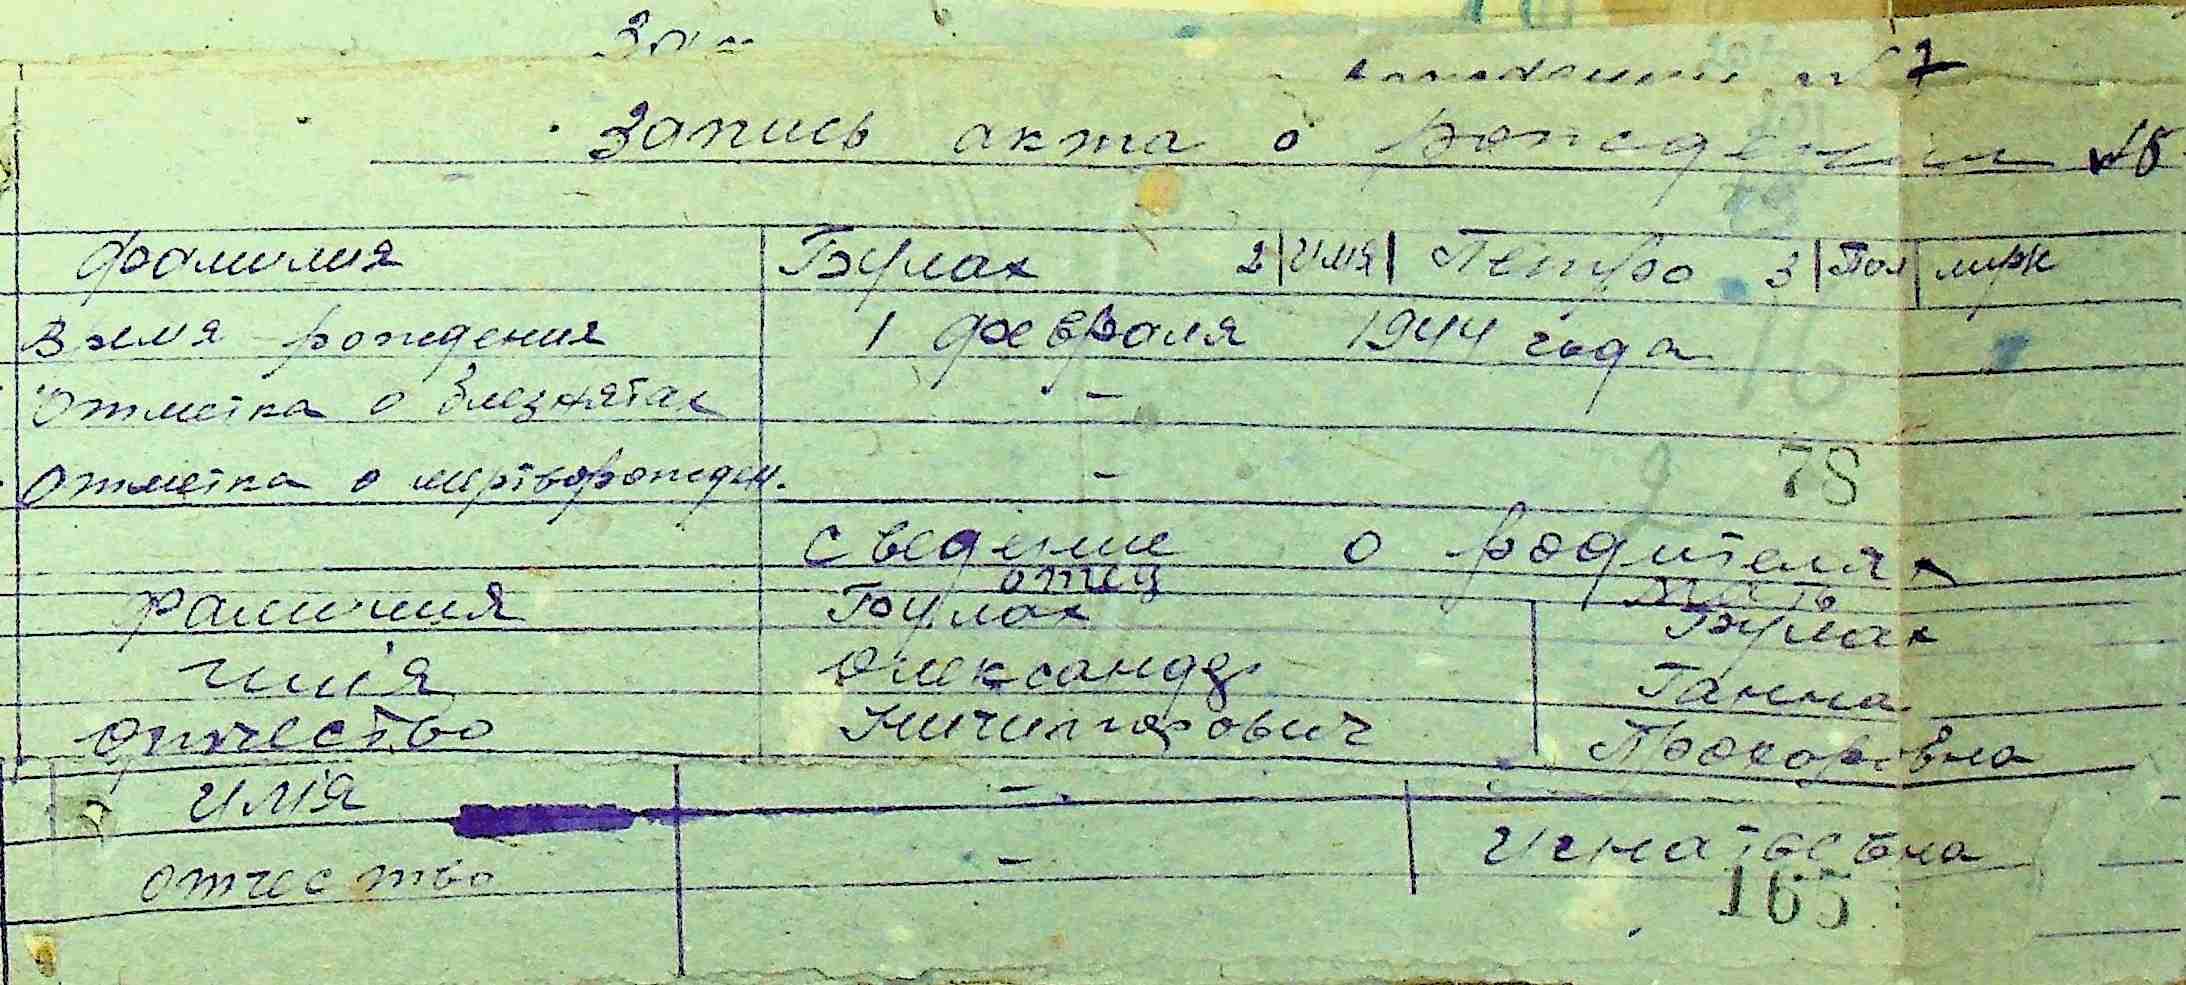 Запись акта о рождении №5
фамилия Булах 2 имя Петро 3 Пол муж
Время рождения 1 февраля 1944 года
Отметка о близнятах –
Отметка о мертворожден. –
78
Сведение о родителях
отец мать
фамилия Булах Булах
имія Олександр Ганна
отчество Ничипорович Прохоровна
имія –
отчество – Игнатьевна
165